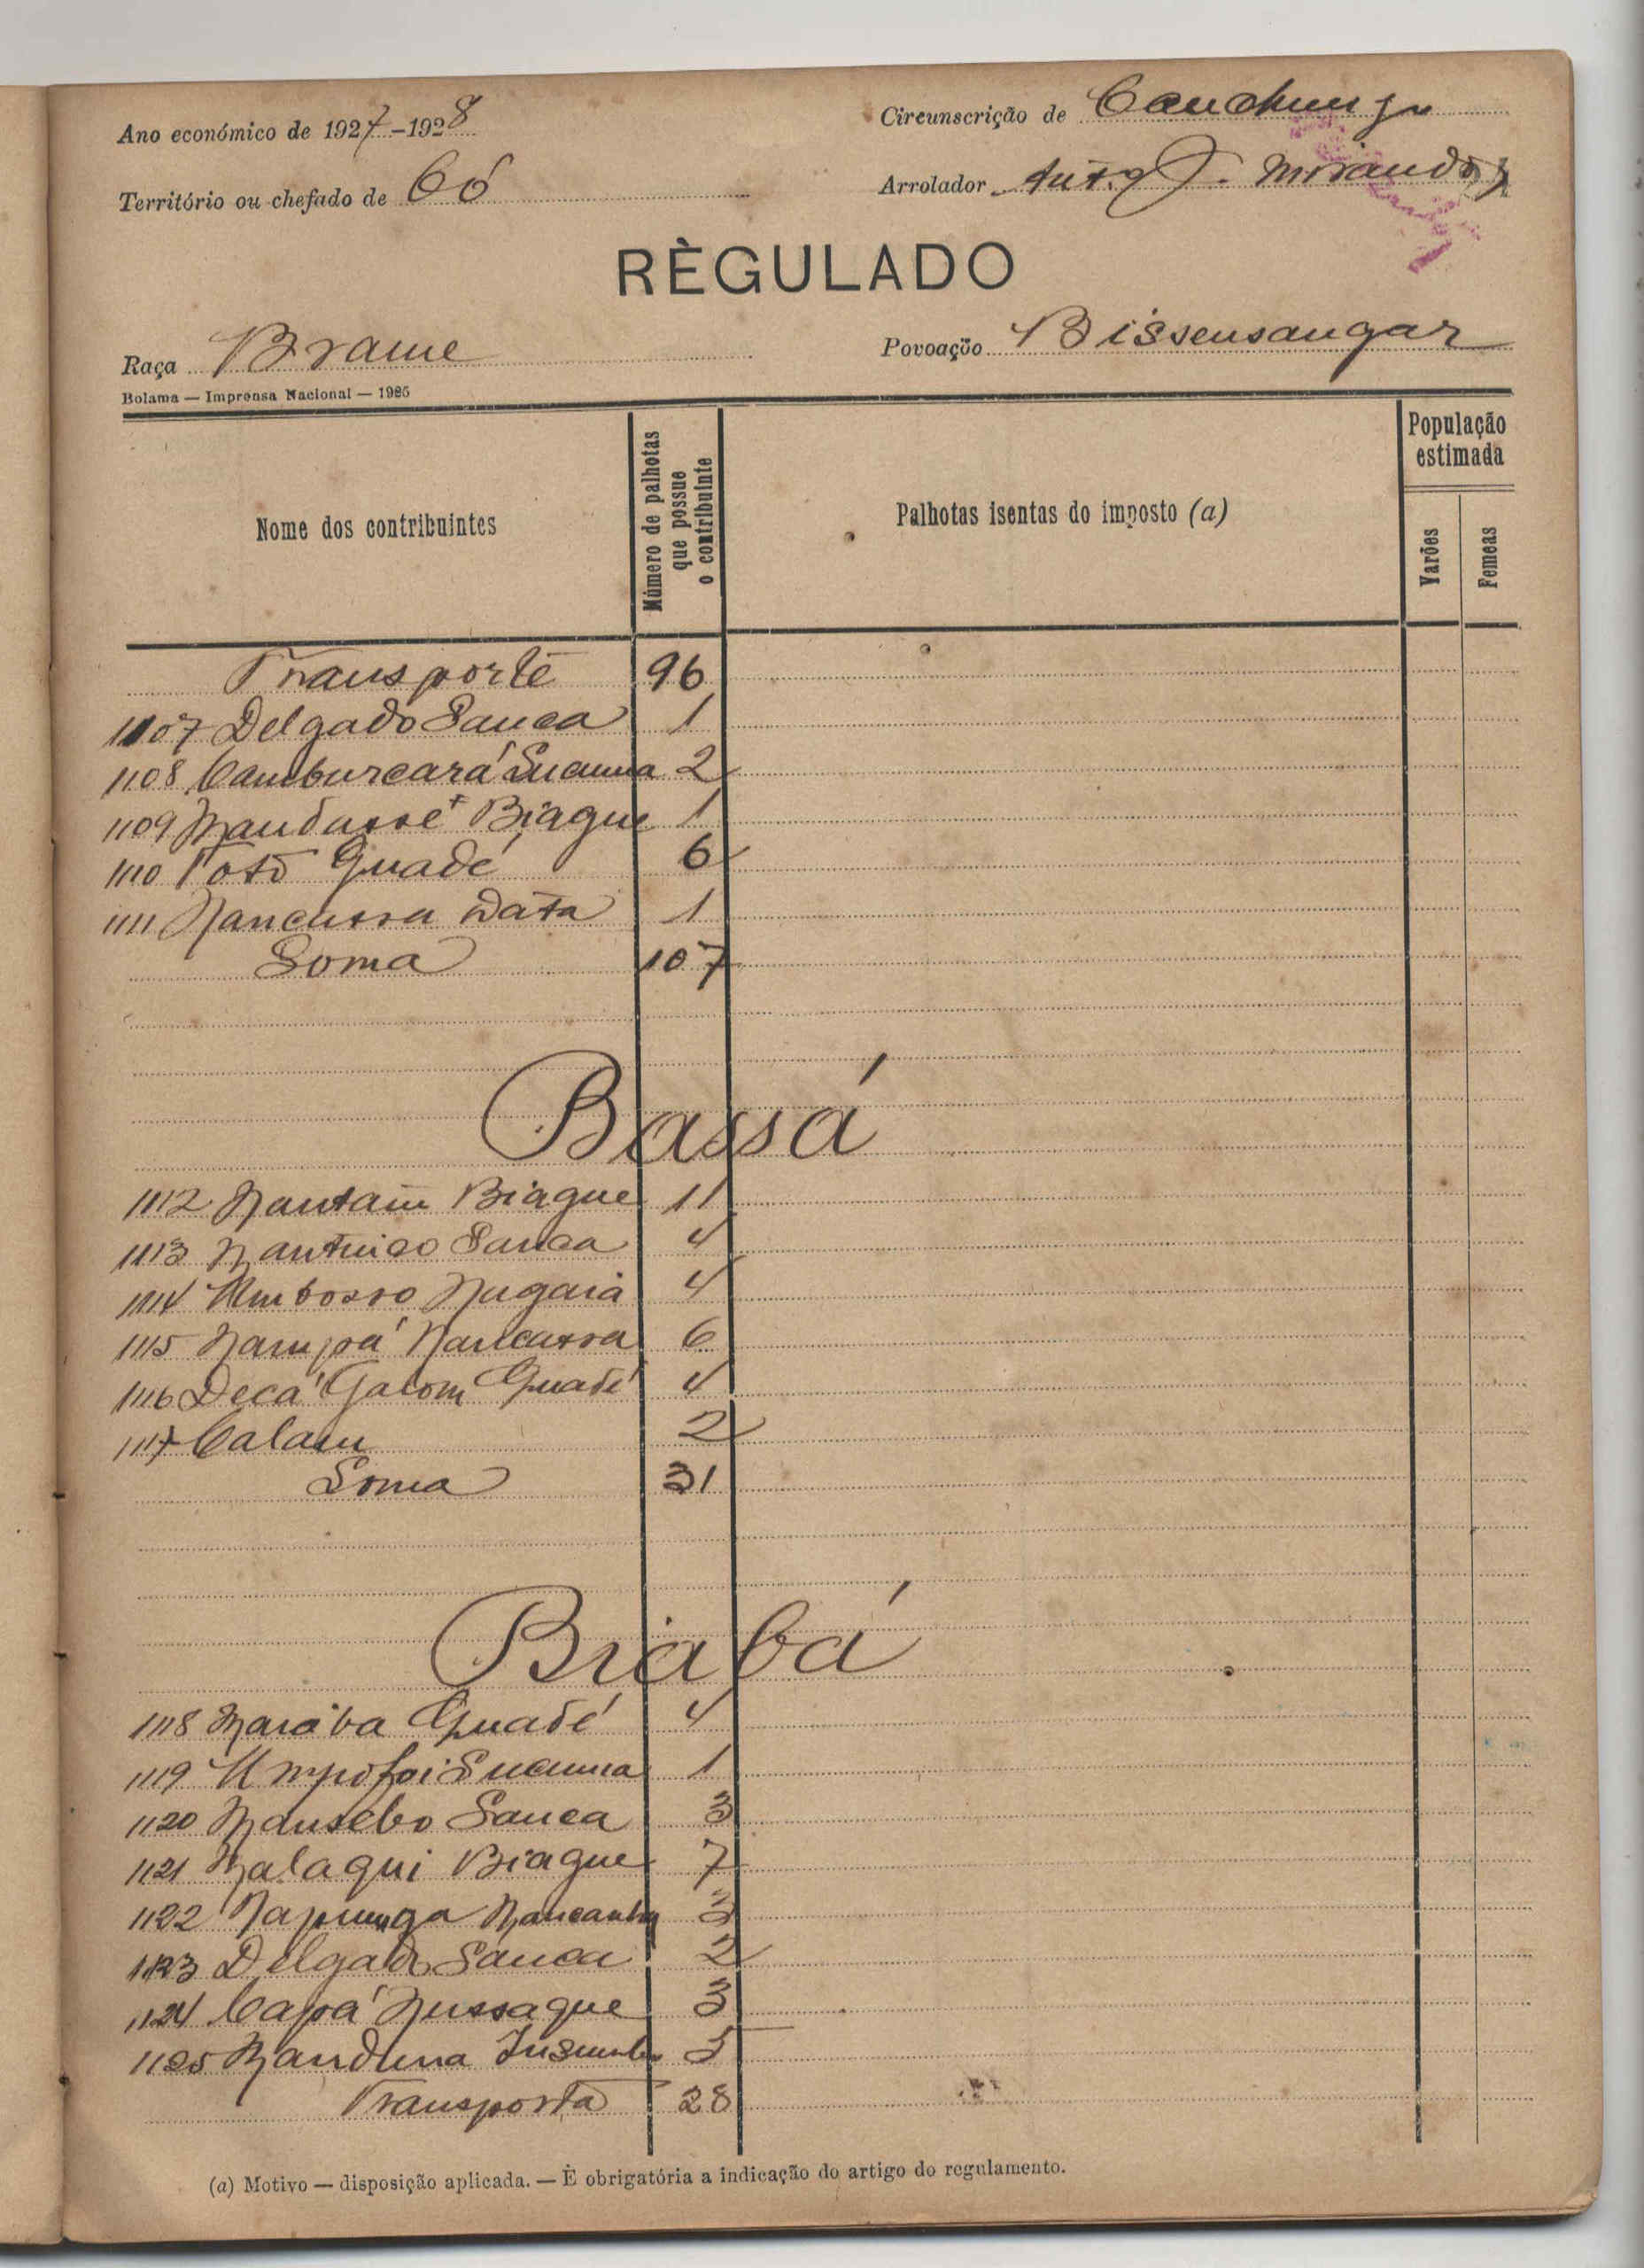 Ano económico de 1927-1928
Circunscrição de Canchungo
Território ou chefado de Có
Arrolador Antº J. Miranda
RÈGULADO
Raça Brame
Povoação Bissensangar
Bolama — Imprensa Nacional — 1925
Nome dos contribuintes
Número de palhotas que possue o contribuinte
Palhotas isentas do imposto (a)
População estimada
Varões
Femeas
Transporte 96
1107 Delgado Sanca 1
1108 Camburcará Sucuma 2
1109 Biague 1
1110 Totó Guadé 6
1111 Nancassa Data 1
Soma 107
Bassá
1112 Nantam Biague 11
1113 Sanca 4
1114 Umbosso Nugaia 4
1115 Nampá Nancassa 6
1116 Decá Galom Guadé 4
1117 Calam 2
Soma 31
Biabá
1118 Naiába Guadé 4
1119 Umpofoi Sucuma 1
1120 Nansebo Sanca 3
1121 Nalaqui Biague 7
1122 Napunga 3
1123 Delgado Sanca 2
1124 Capá Nussaque 3
1125 Nanduna 5
Transporta 28
(a) Motivo — disposição aplicada. — È obrigatória a indicação do artigo do regulamento.